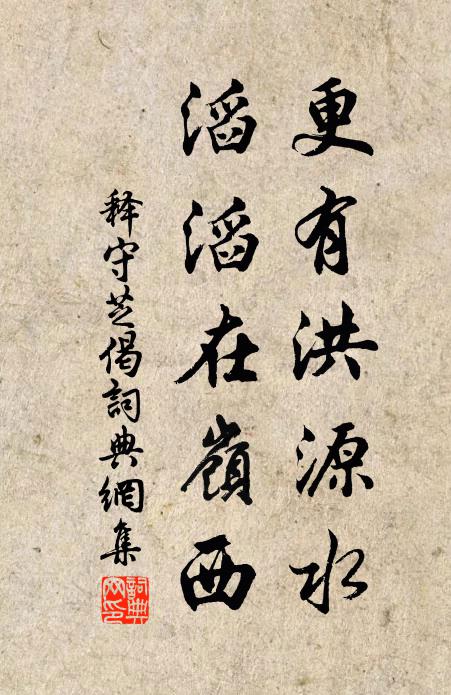 更有洪源水
滔滔在嶺西
释守芝偈詞典網集
詞典网印